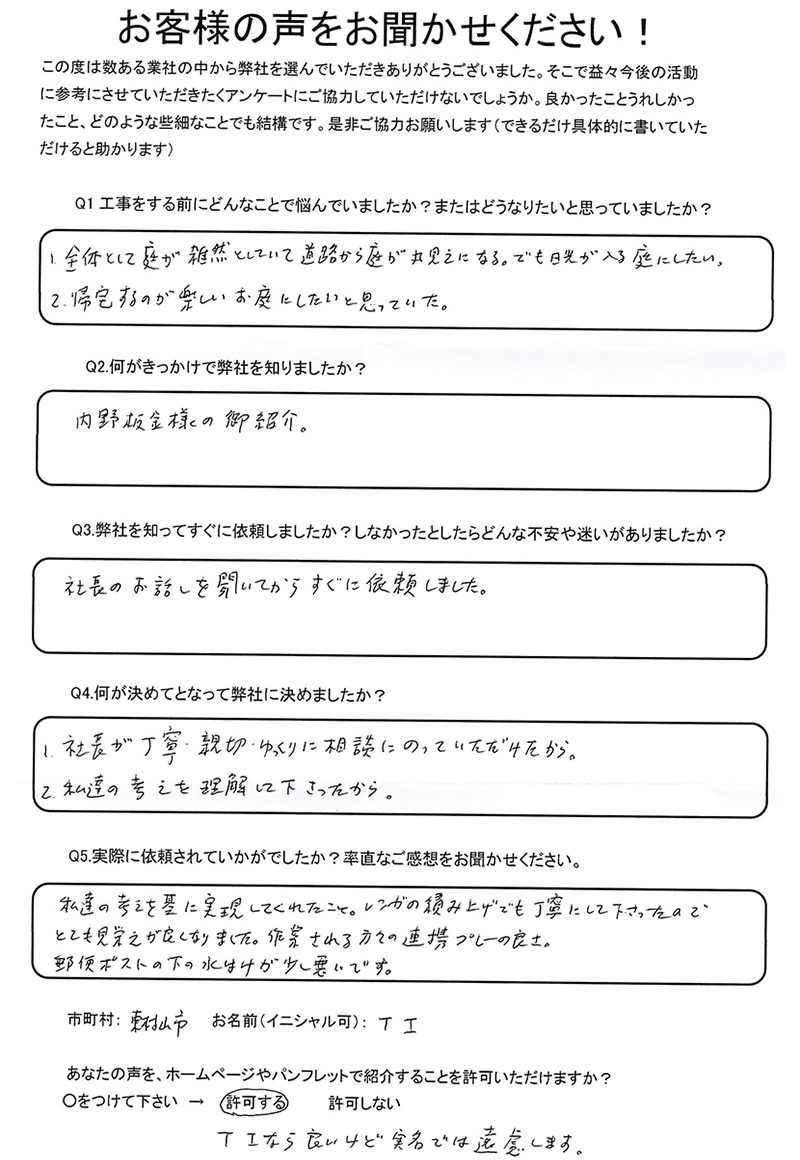 お客様の声をお聞かせください！
この度は数ある業社の中から弊社を選んでいただきありがとうございました。そこで益々今後の活動
に参考にさせていただきたくアンケートにご協力していただけないでしょうか。良かったことうれしかっ
たこと、どのような些細なことでも結構です。是非ご協力お願いします（できるだけ具体的に書いていた
だけると助かります）
Q1 工事をする前にどんなことで悩んでいましたか？またはどうなりたいと思っていましたか？
1. 全体として庭が雑然としていて道路から庭が丸見えになる。でも日光が入る庭にしたい。
2. 帰宅するのが楽しいお庭にしたいと思っていた。
Q2.何がきっかけで弊社を知りましたか？
内野板金様の御紹介。
Q3.弊社を知ってすぐに依頼しましたか？しなかったとしたらどんな不安や迷いがありましたか？
社長のお話しを聞いてからすぐに依頼しました。
Q4.何が決めてとなって弊社に決めましたか？
1. 社長が丁寧・親切・ゆっくりに相談にのっていただけたから。
2. 私達の考えを理解して下さったから。
Q5.実際に依頼されていかがでしたか？率直なご感想をお聞かせください。
私達の考えを基に実現してくれたこと。レンガの積み上げでも丁寧にして下さったので
とても見栄えが良くなりました。作業される方々の連携プレーの良さ。
郵便ポストの下の水はけが少し悪いです。
市町村： 東村山市 お名前（イニシャル可）： T I
あなたの声を、ホームページやパンフレットで紹介することを許可いただけますか？
〇をつけて下さい → 許可する 許可しない
T Iなら良いけど実名では遠慮します。